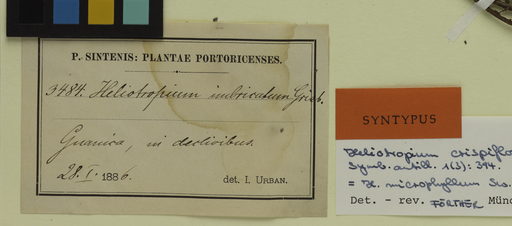 P. SINTENIS: PLANTAE PORTORICENSES.
3484. Heliotropium imbricatum Griseb.
Guanica, in declivibus.
28. I. 1886. det. I. URBAN.
SYNTYPUS
Heliotropium crispiflo
Symb. antill. 1(3): 394.
= H. microphyllum Sw.
Det. - rev. FÖRTHER Mün